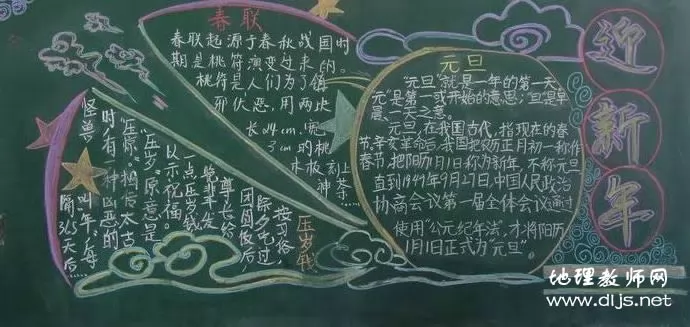 春联
春联起源于春秋战国时
期是桃符演变过来的。
桃符是人们为了镇
邪伏恶,用两块
木板,刻
压岁钱
按习俗,
除夕吃过
团圆饭后,
尊长给
一点压岁钱
以示祝福。
"压岁"原意是
"压惊"。相传太古
时,有一种凶恶的
怪兽叫年,每
隔365天后
元旦
"元旦"就是一年的第一天。
元"是第一或开始的意思;旦是早
晨、一天之意。
元旦,在我国古代,指现在的春
节,辛亥革命后,我国把农历正月初一称作
春节,把阳历1月1日称为新年,不称元旦
直到1949年9月27日,中国人民政治
协商会议第一届全体会议通过
使用"公元纪年法",才将阳历
1月1日正式为"元旦"。
迎新年
地理教师网
www.dljs.net